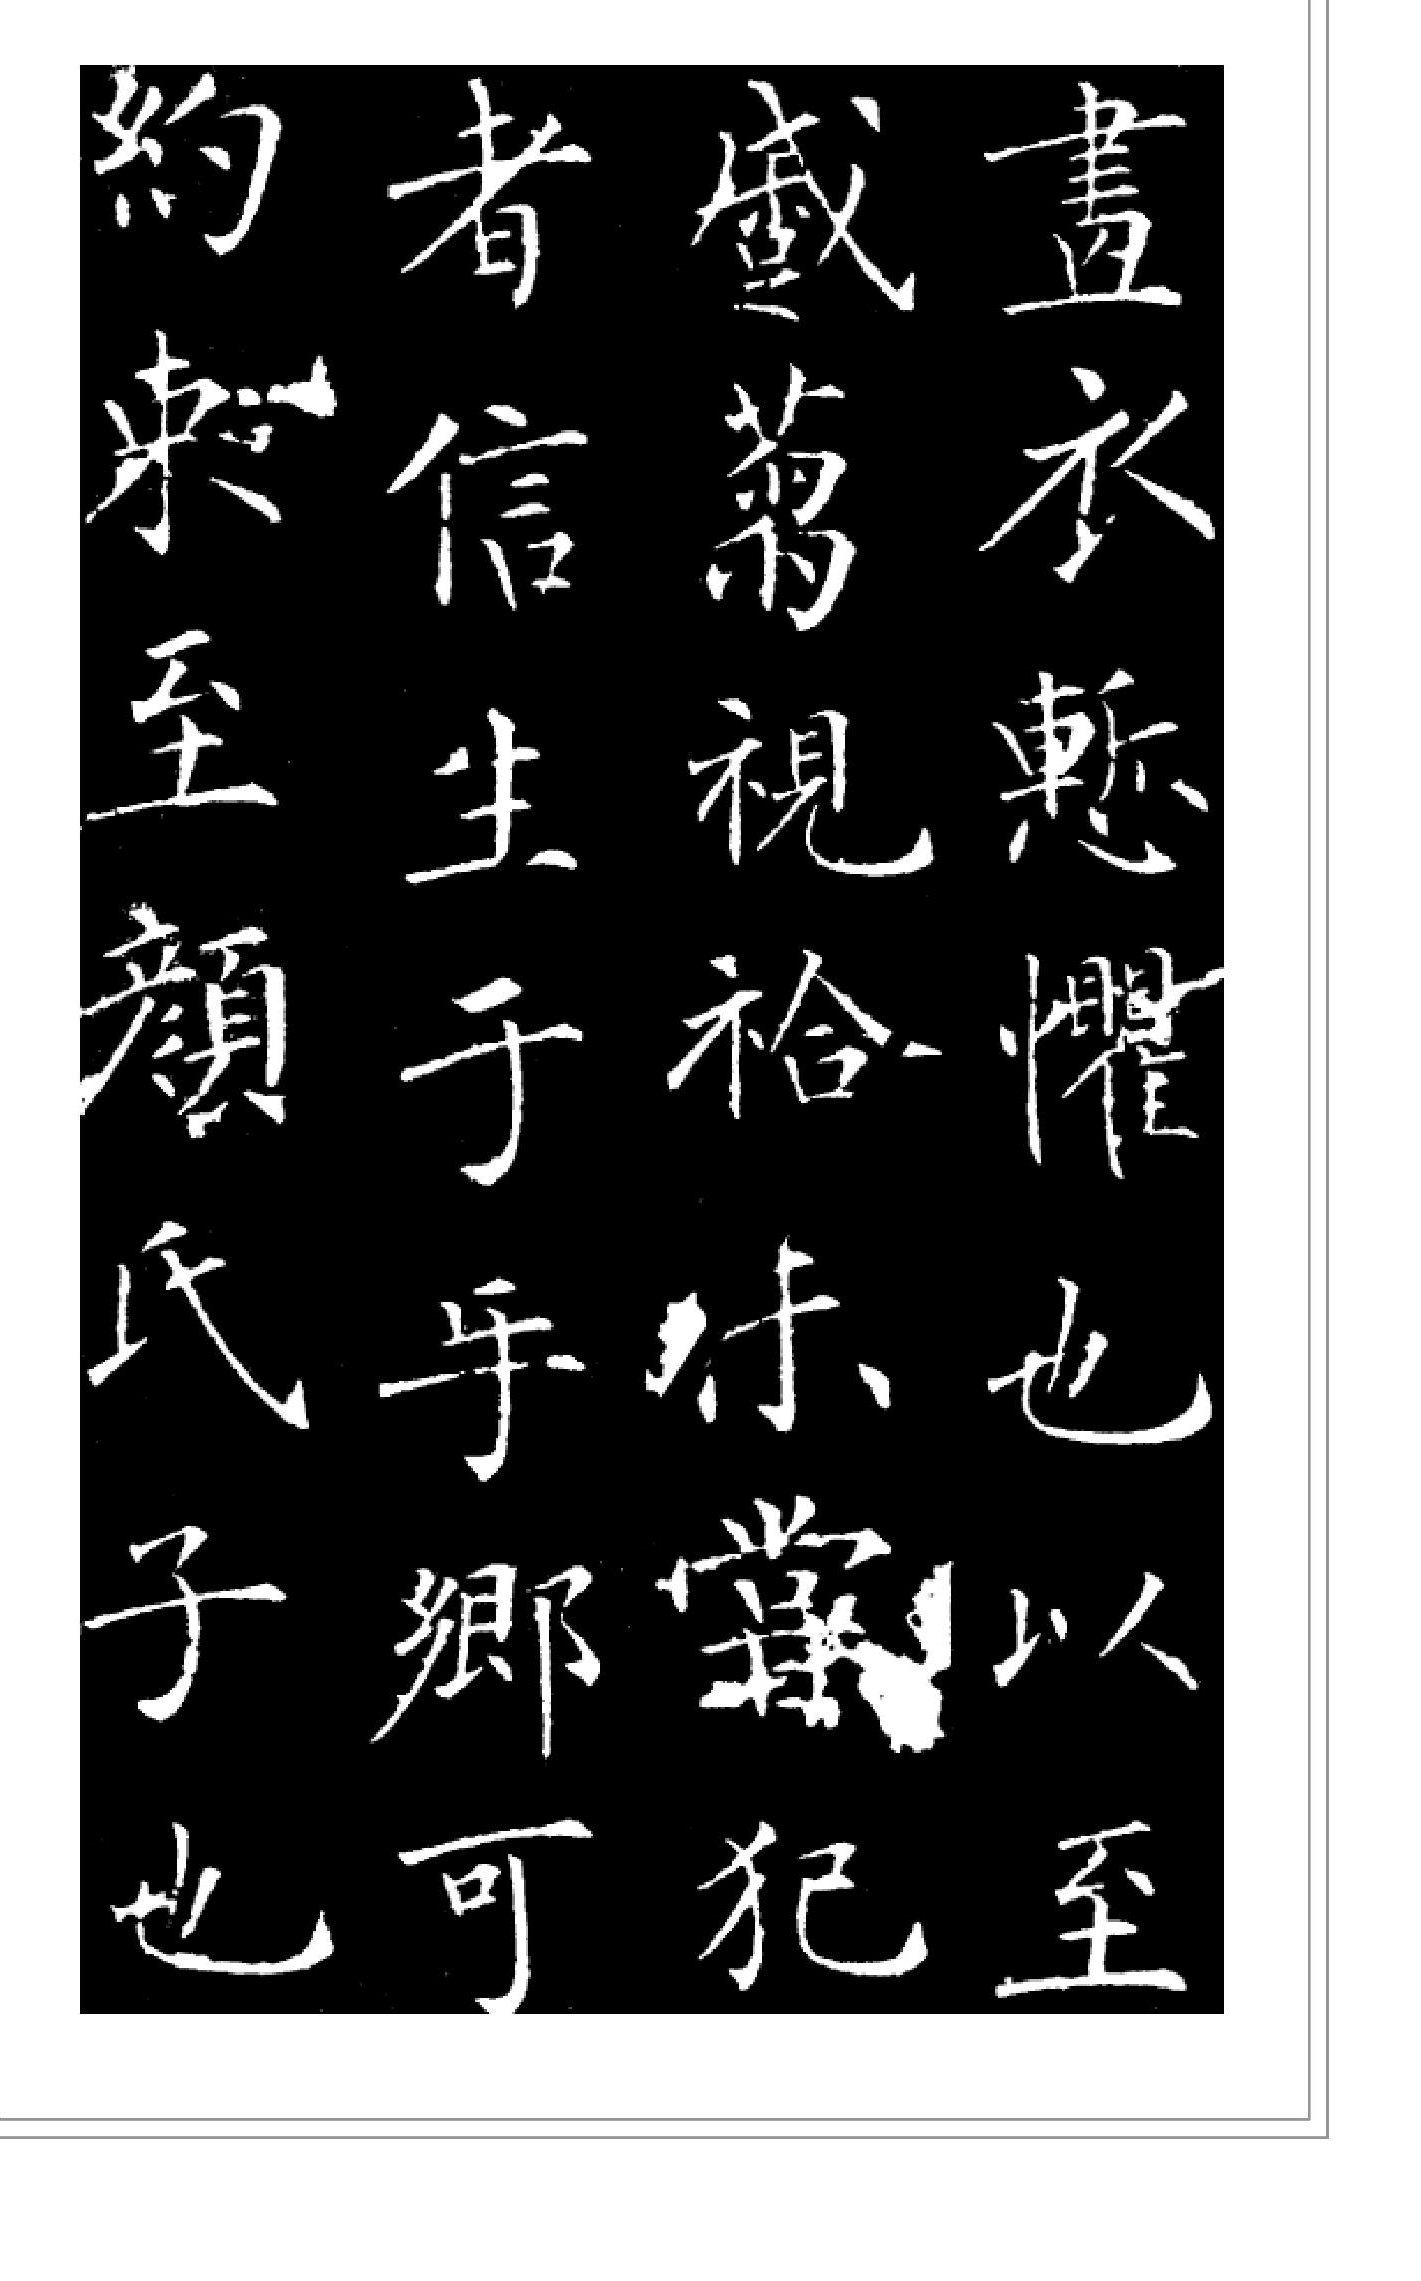 畫衣慙懼也以至
蹙蒭視袷未嘗犯
者信生于互鄉可
約束至顏氏子也